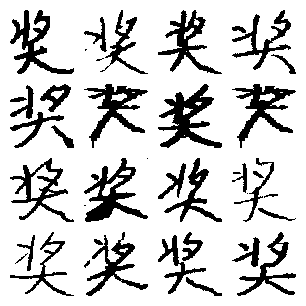 奖奖奖奖
奖奖奖奖
奖奖奖奖
奖奖奖奖